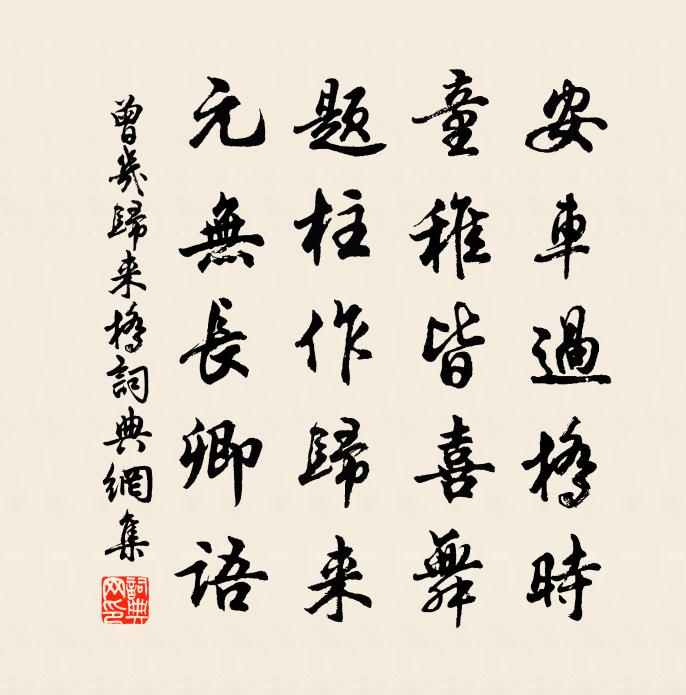 安車過橋時
童稚皆喜舞
题柱作歸来
元無長卿语
曾幾歸来橋詞典網集
詞典網印